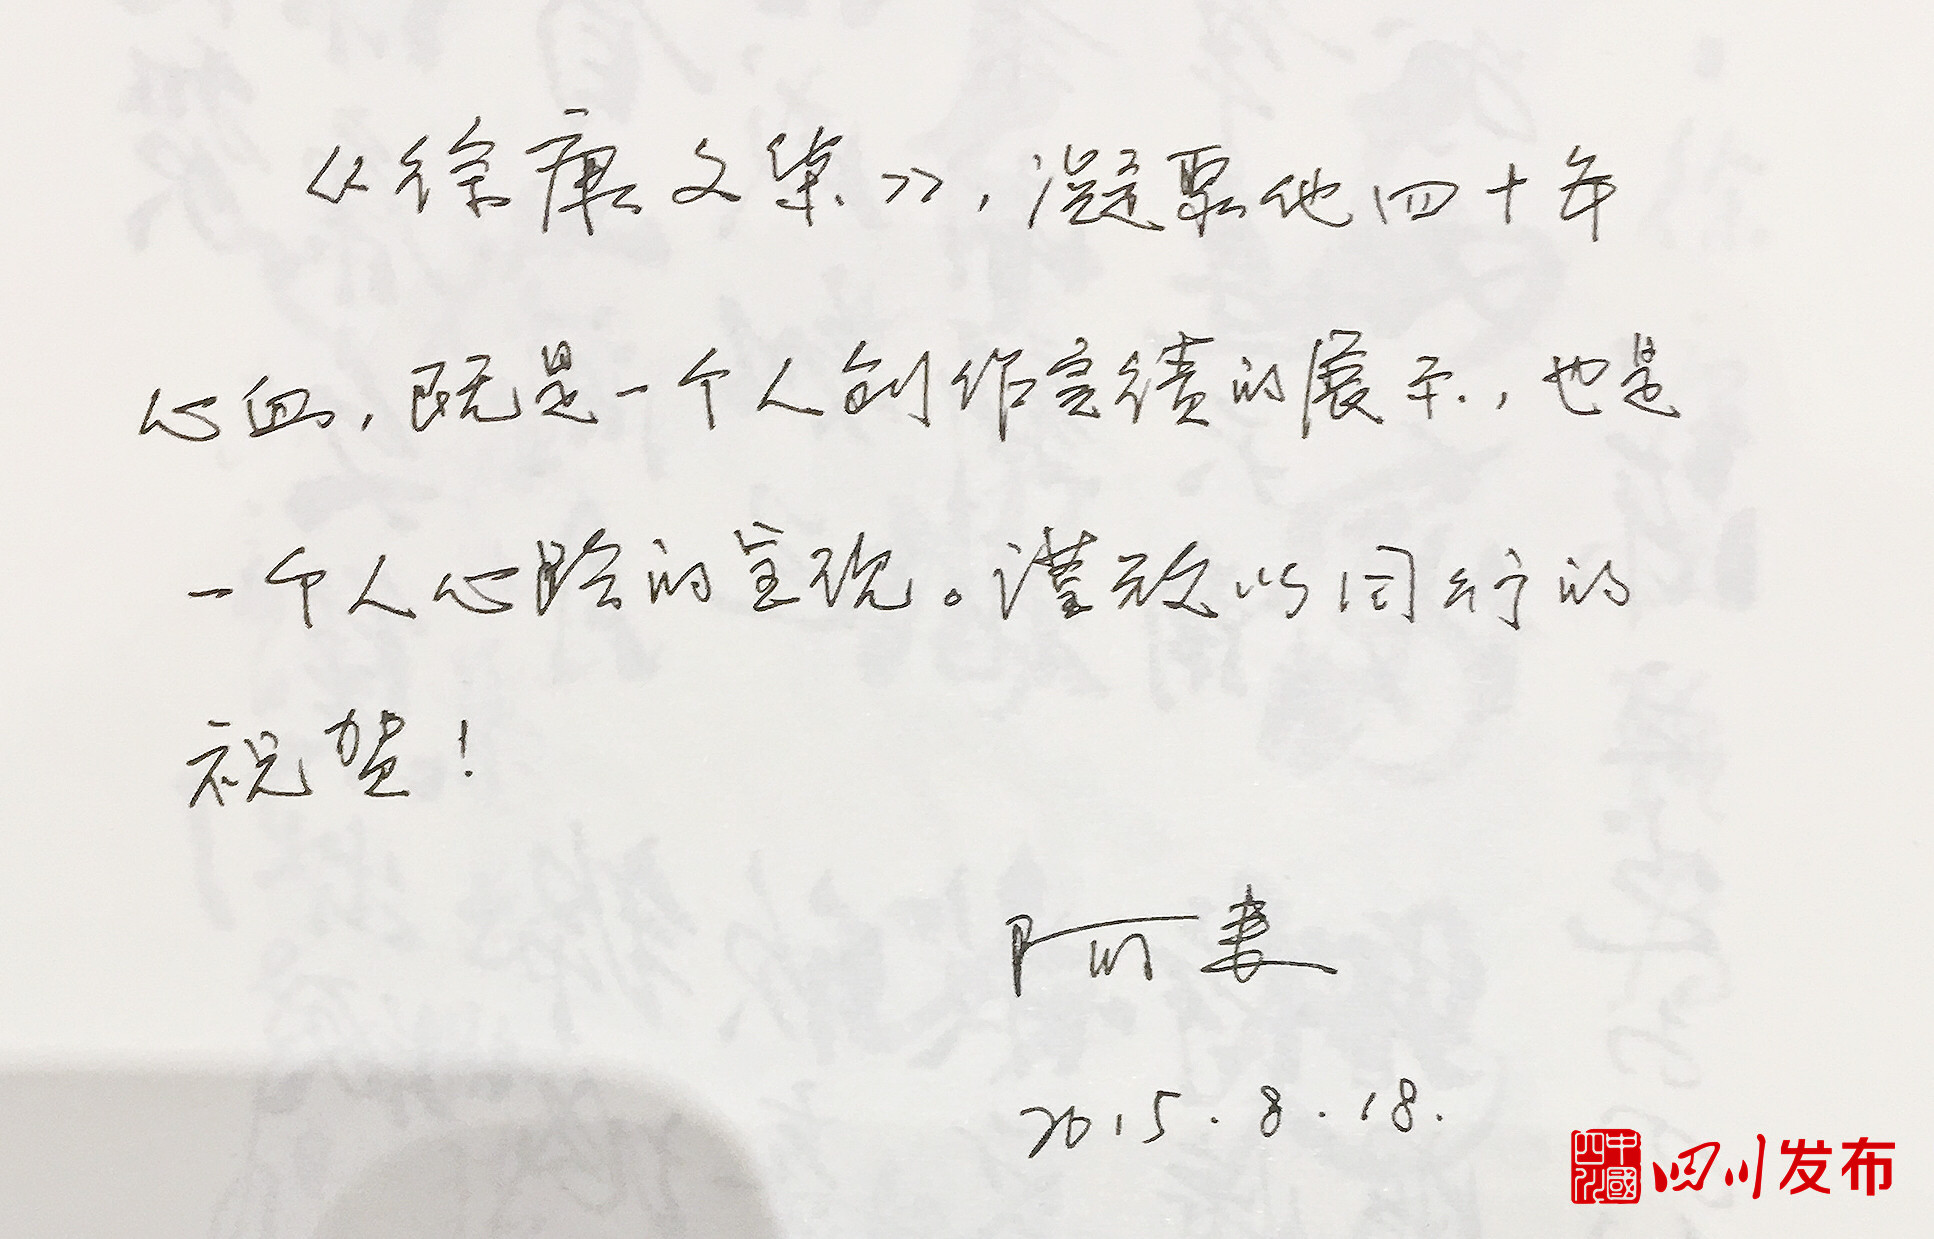 《徐康文集》，凝聚他四十年
心血，既是一个人创作实绩的展示，也是
一个人心路的呈现。谨致以同行的
祝贺！
阿来
2015.8.18.
中國四川
四川发布